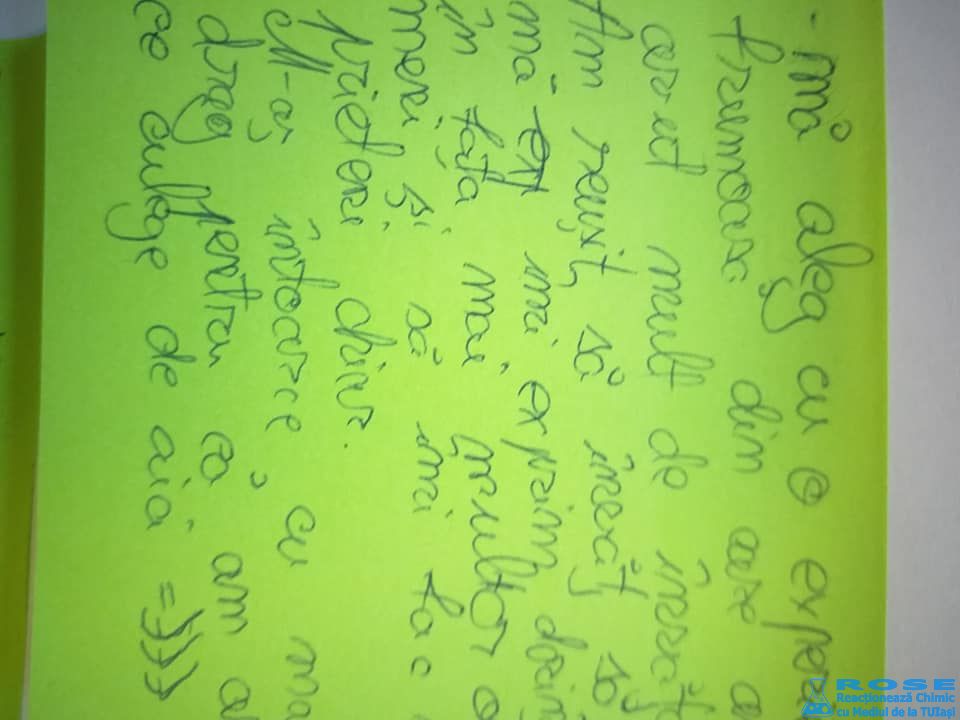 - mă aleg cu o expe
frumoasă din care a
avut mult de învăț
Am reușit să învăț să
mă exp îmi exprim
în fața mai multor o
meni și să îmi fac
prieteni chiar.
M-aș întoarce cu ma
drag pentru că am a
ce culege de aia =)))
ROSE
Reactionează Chimic
cu Mediul de la TUIași